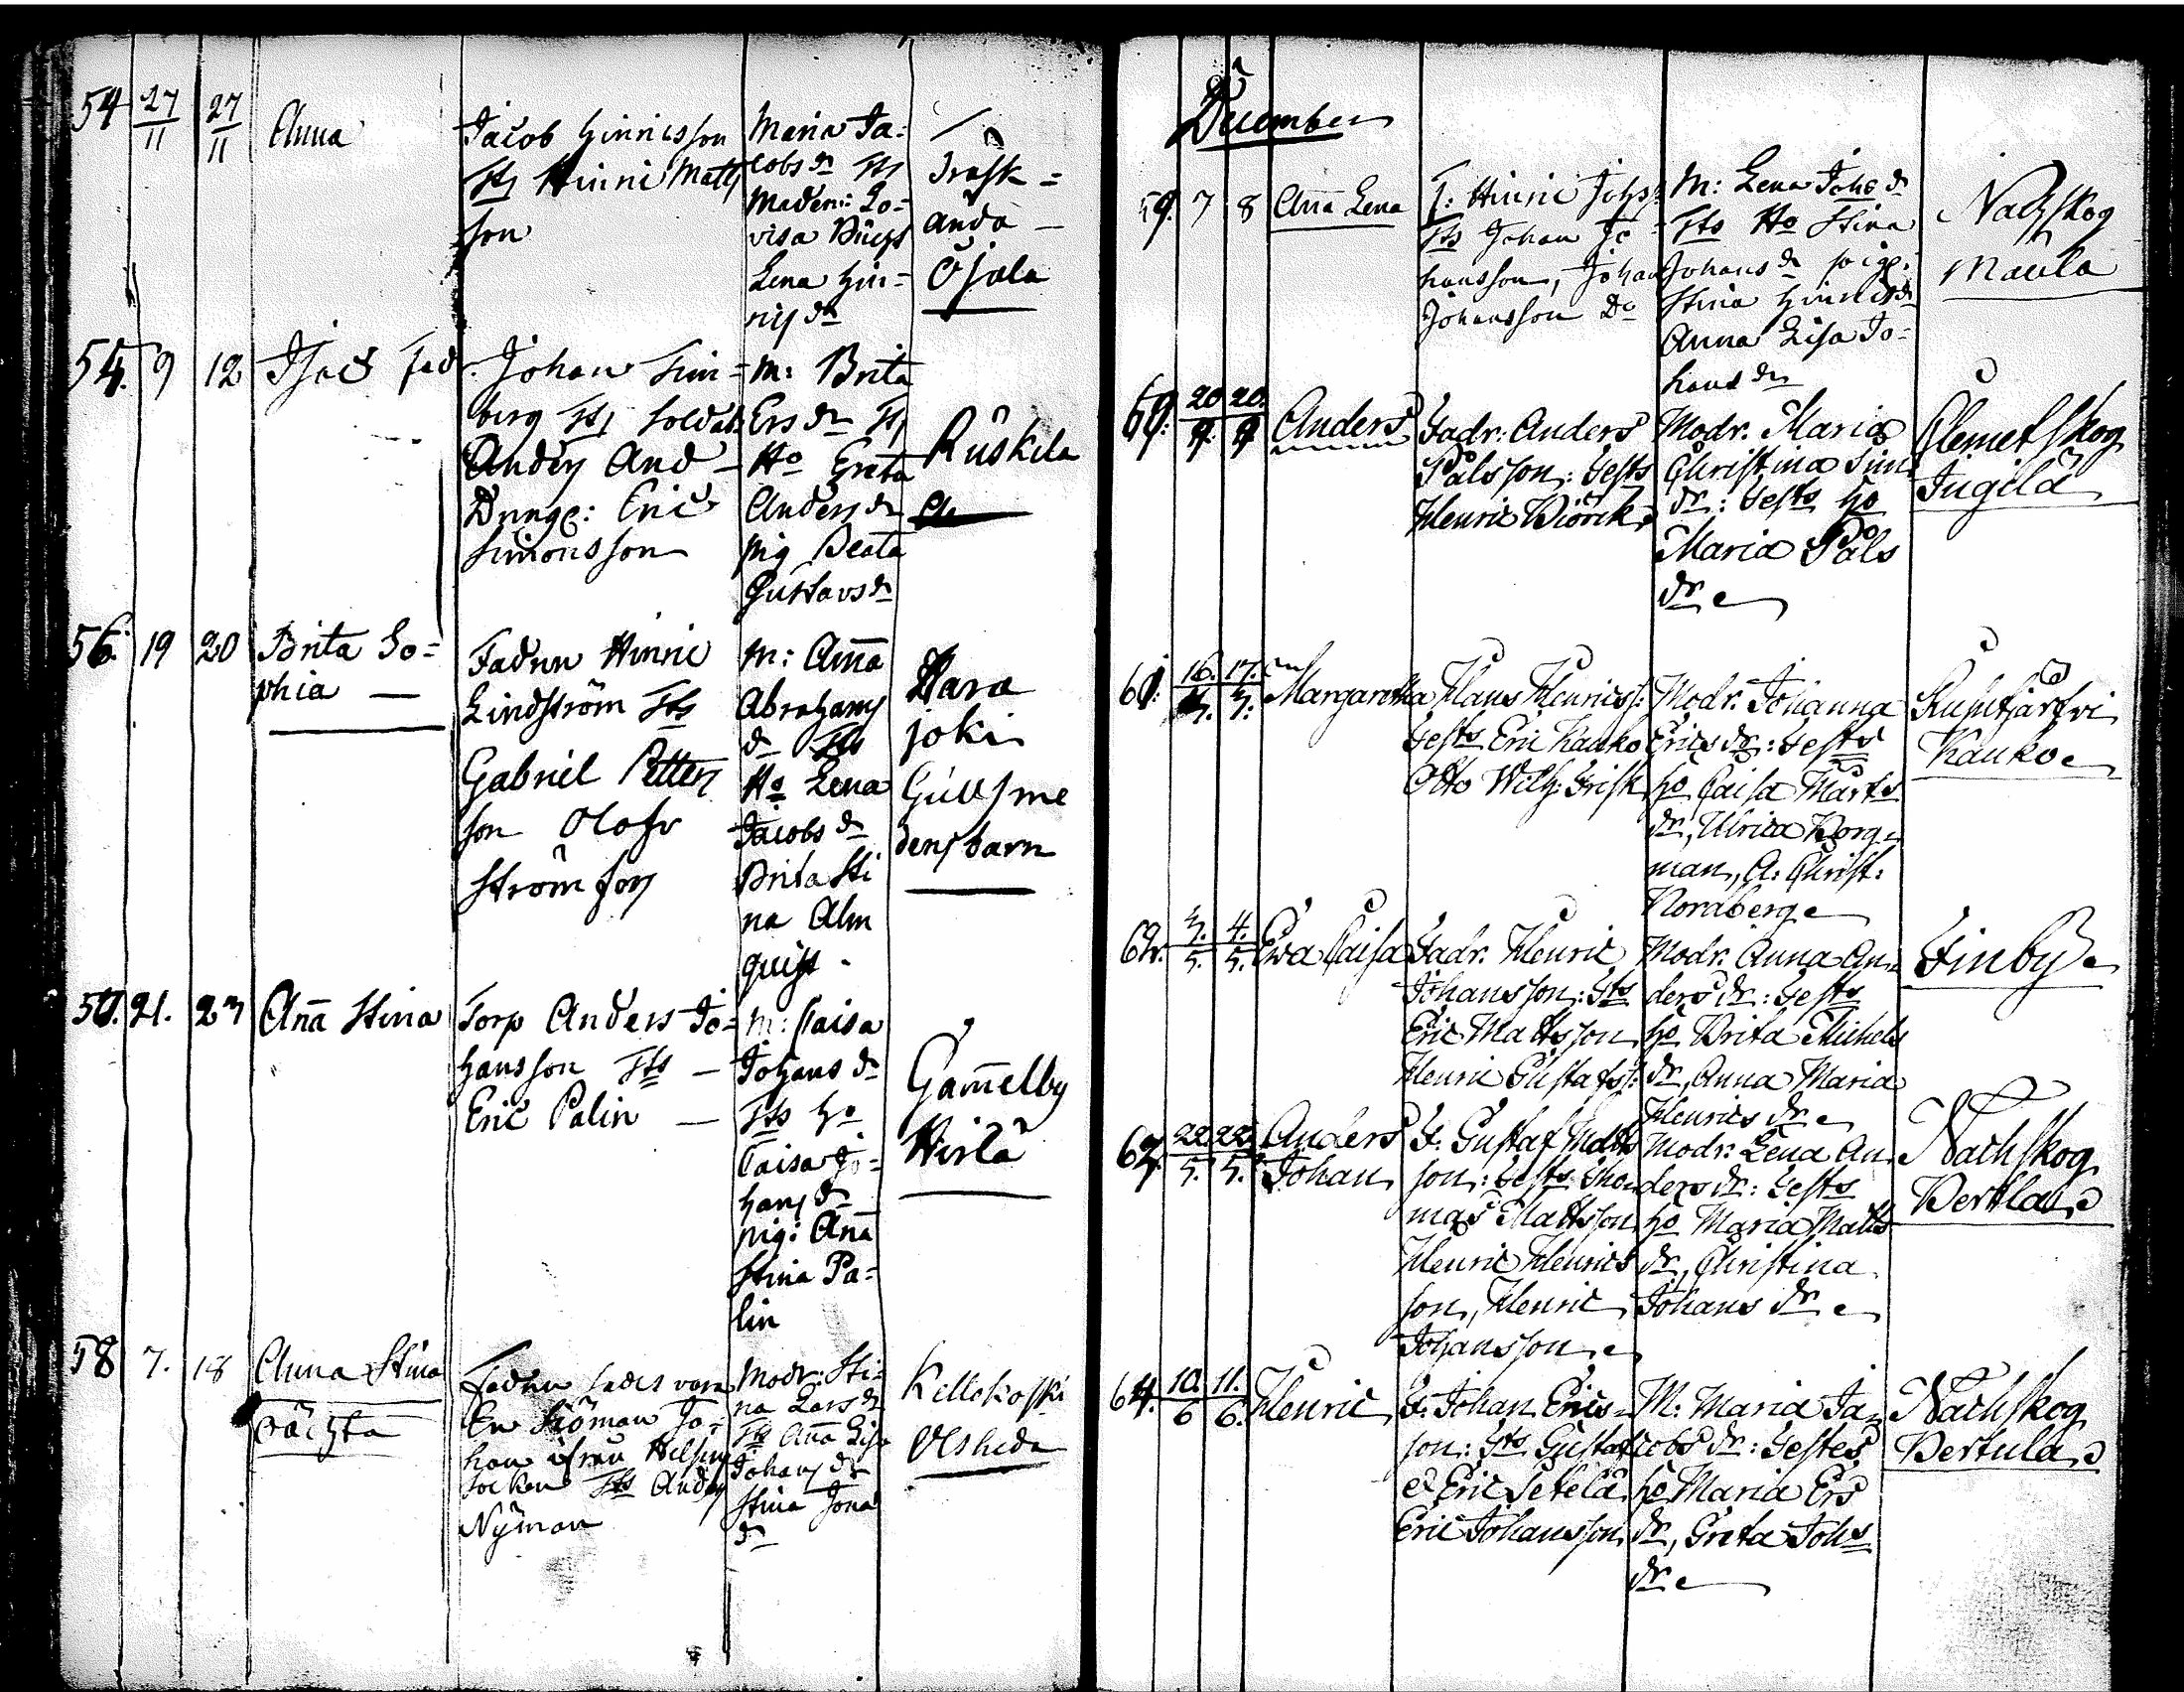 54 27/11 27/11 Anna
Jacob Hinricsson
Tts Hinric Matts
son
Maria Ja=
cobs dr Tts
Madem: Lo=
visa
Lena Hin=
rics dr
Träsk=
ända
Ojala
54. 9 12 Isac Fadr.
Johan Sim=
berg Tts Soldat
Anders And
Drnge: Eric
Simonsson
M: Brita
Ers dr Tts
Ho Greta
Anders dr
pig Beata
Gustavs dr
Ruskela
56. 19 20 Brita So=
phia
Fadren Hinric
Lindström Tts
Gabriel Petters
son Olofv
Ström son
M: Aña
Abrahams
dr Tts
Ho Lena
Jacobs dr
Brita Sti
na Alm
quist
Hara
joki
Gullsme
dens barn
57. 21. 23 Aña Stina
Torp Anders Jo=
hansson Tts
Eric Palin
M: Caisa
Johans dr
Tts Ho
Caisa Jo=
hans dr
pig: Aña
Stina Pa=
lin
Gam̄elby
Hirlä
58 7. 18 Anna Stina
oächta
Fadren sades vara
En Siöman Jo=
han ifrån Helsing
socken Tts Anders
Nyman
Modr: Sti=
na Lars dr
Tts Aña Lisa
Johans dr
Stina Jona
dr
Kellokoski
December
59. 7 8 Aña Lena
F: Hinric Johss:
Tts Johan Jo
hansson, Johan
Johansson Do
M: Lena Johs dr
Tts Ho Stina
Johans dr pige:
Stina Hinrics dr
Anna Lisa Jo=
hans dr
Nachskog
Maula
20 20 Anders
Fadr: Anders
Pålsson: Tests
Henric Biörck
Modr. Maria
Christina Sim
dr: Tests Ho
Maria Påls
dr
Clemetskog
Jugila
61. 16. 17. Margaretha
Klaus Henrics:
Tests Eric Kauko
Otto Wilh: Frisk
Modr. Johanna
Erics dr: Tests
Ho Caisa Märts
dr, Ulrica Borg=
man, A: Christ:
Nordberg
Ruhkjärfvi
Kauko
62. 3./5. 4./5. Ewa Caisa
Fadr. Henric
Johansson: Tts
Eric Mattsson
Henric Gustafs:
Modr. Anna An=
ders dr: Tests
Ho Brita Michels
dr, Anna Maria
Henrics dr
Finby
63. 22./5. 22./5. Anders
Johan
F. Gustaf Matts
son: Tests Tho=
mas Mattsson
Henric Henrics
son, Henric
Johansson
Modr: Lena An=
ders dr: Tests
Ho Maria Matts
dr, Christina
Johans dr
Nachskog
Bertlas
64. 10./6 11./6. Henric
F. Johan Erics=
son: Tts Gustaf
& Eric Setelä
Eric Johansson
M: Maria Ja=
cobs dr: Testes
Ho Maria Ers
dr, Greta Johs
dr
Nachskog
Bertula